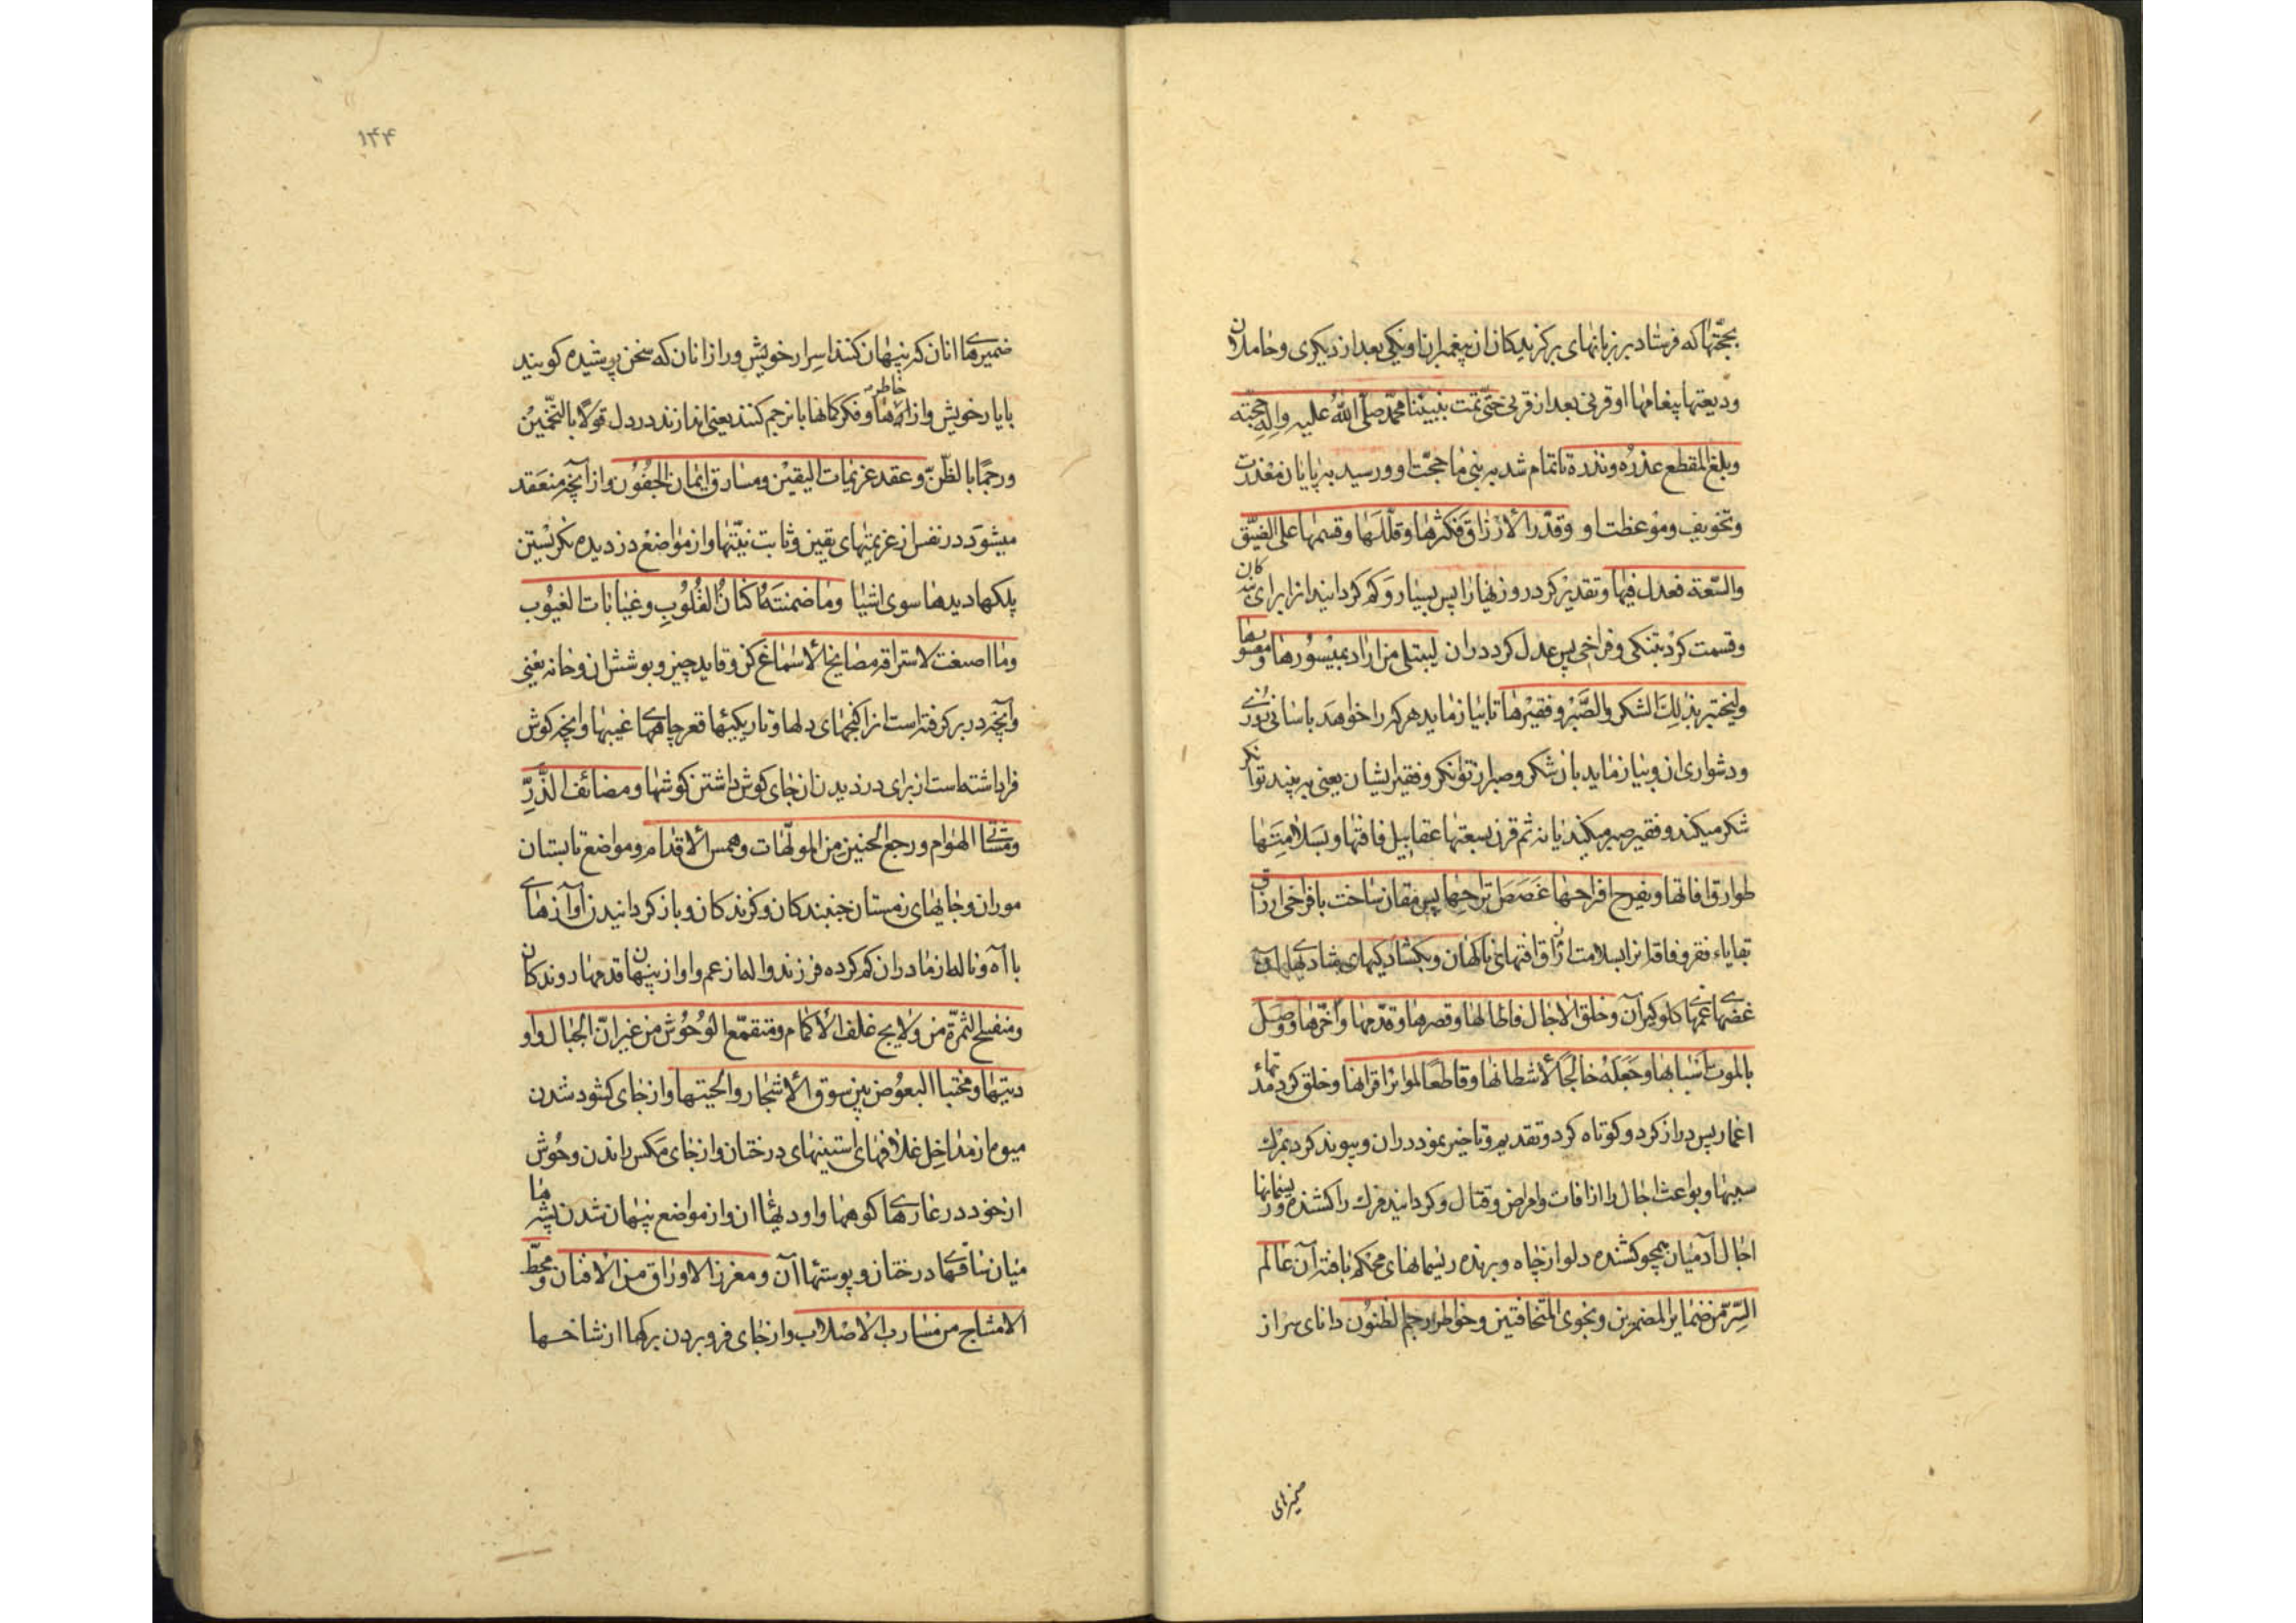 بحجّتها که فرستاد بر زبانهای برگزیدکان از پیغمبران او یکی بعد از دیکری و حاملان
ودیعتها پیغامها او قرنی بعد از قرنی حتّی تمّت بنبیّنا محمّد صلّی اللّه علیه وآله حجّته
وبلغ المقطع عذره ونذره تا تمام شد به نبی ما حجّت او و رسید به پایان معذرت
و تخویف و موعظت او وقدّر الأرزاق فکثّرها وقلّلها وقسمها علی الضیّق
والسّعة فعدل فیها و تقدیر کرد روزیها را پس بسیار و کم کردانید از برای بندکان
و قسمت کرد بتنکی و فراخی پس عدل کرد در ان لیبتلی من اراد بمیسورها ومعسورها
ولیختبر بذلک الشکر والصّبر وفقیرها تا بیازماید هر که را خواهد باسانی روزی
و دشواری ان و بیازماید بان شکر و صبر از توانکر و فقیر ایشان یعنی به بیند توانکر
شکر میکند و فقیر صبر میکند یا نه ثم قرن بسعتها عقابیل فاقتها وبسلامتها
طوارق افاتها وبفرح افراحها غصص تراحها پس مقارن ساخت با فراخی ارزاق
بقایاء فقر و فاقه را بسلامت ارزاق افتهای ناکهان و بکشادکیهای شادیها
غصّهای غمها کلوکیر آن وخلق الاجال فاطالها وقصرها وقدّمها واخّرها ووصل
بالموت اسبابها وجعله خالجًا لأشطانها وقاطعًا لمرائر اقرانها و خلق کرد
اعمار پس دراز کرد و کوتاه کرد و تقدیم و تاخیر نمود در ان و پیوند کرد بمرک
سببها و بواعث اجال را از افات و امراض و قتال و کردانید مرک را کشنده ریسمانها
اجال آدمیان همچو کشنده دلو از چاه و برنده ریسمانهای محکم بافته آن عالم
السّرّ من ضمایر المضمرین ونجوی المتخافتین وخواطر رجم الظنون دانای سر از
ضمیرهای
۱۴۴
ضمیرهای انان که پنهان کنند اسرار خویش و راز انان که سخن پوشیده کویند
با یار خویش و از خاطرها و فکرکانها با نرجم کنند یعنی اندازند در دل قولًا بالتّخمین
ورجمًا بالظّنّ وعقد عزیمات الیقین ومسارق ایماض الجفون و از آنچه منعقد
میشود در نفس از عزیمتهای یقین و ثابت نیّتها و از مواضع دزدیده نکریستن
پلکها دیدها سوی اشیا وما ضمنته اکنان القلوب وغیابات الغیوب
وما اصغت لاستراقه مصایخ الأسماع کن وقایه چیز و پوشش ان و خانه یعنی
و آنچه در بر کرفته است از کنجهای دلها و تاریکیها قعر چاههای غیبها و انچه کوش
فراداشته است از برای دزدیدن از جای کوش داشتن کوشها ومصائف الذّرّ
ومشاتی الهوام ورجع الحنین من المولّهات وهمس الأقدام و مواضع تابستان
موران و جایهای زمستان جنبندکان و کزندکان و باز کردانیدن آوازهای
با آه و ناله از مادران کم کرده فرزند واله از غم و اواز پنهان قدمها روندکان
ومنفسح الثمرة من ولایج غلف الأکمام ومنقمّع الوحوش من غیران الجبال واو
دیتها ومختبا البعوض بین سوق الأشجار والحیتها و از جای کشود شدن
میوه از مداخل غلافهای استینهای درختان و از جای مکس راندن وحوش
از خود در غارهای کوهها و اودیهٔا ان و از مواضع پنهان شدن پشه ها
میان ساقهای درختان و پوستهٔا آن ومغرز الاوراق من الافنان ومحطّ
الامشاج من مسارب الاصلاب و از جای فرو بردن برکها از شاخها